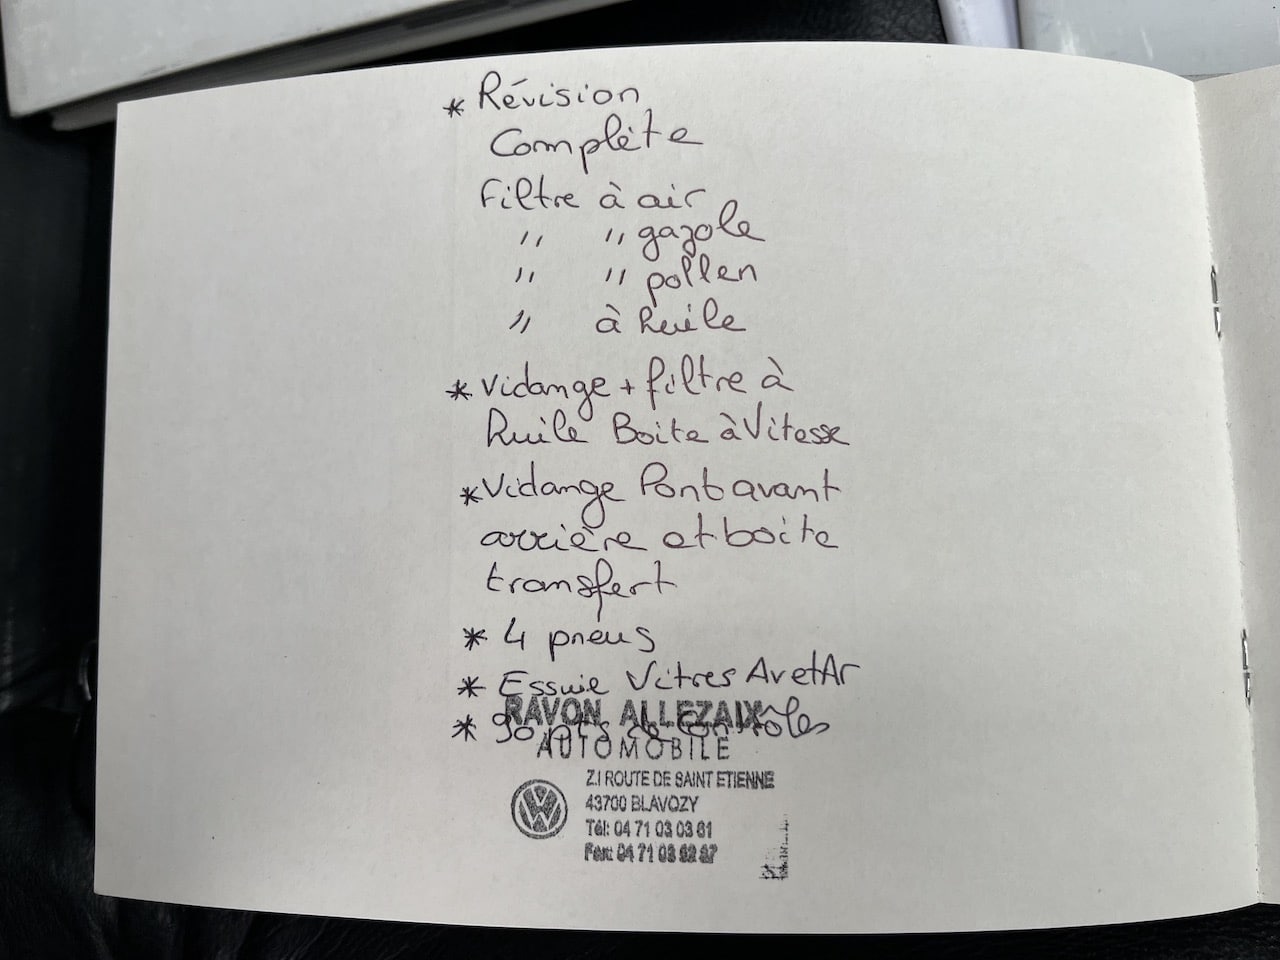 * Révision
Complète
Filtre à air
" " gazole
" " pollen
" à huile
* Vidange + filtre à
huile Boite à Vitesse
* Vidange Pont avant
arrière et boite
transfert
* 4 pneus
* Essuie Vitres Av et Ar
* 90 pts de contrôles
RAVON ALLEZAIX
AUTOMOBILE
Z.I ROUTE DE SAINT ETIENNE
43700 BLAVOZY
Tél: 04 71 03 03 61
Fax: 04 71 03